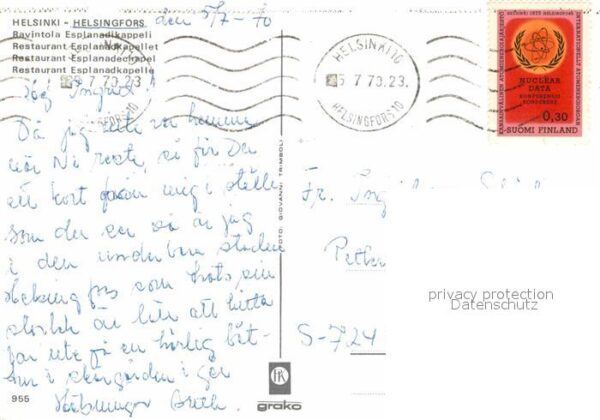 HELSINKI - HELSINGFORS
Ravintola Esplanadikappeli
Restaurant Esplanadkapellet
Restaurant Esplanadechapel
Restaurant Esplanadkapelle
den 5/7 - 70
Hej Ingrid!
Då jag inte var hemma
när Ni reste, så får Du
ett kort från mig i stället
som du ser så är jag
i den underbara staden
Helsingfors som trots sin
storlek är lätt att hitta
ute på en härlig båt-
tur i skärgården i går
Hälsningar
955
FOTO: GIOVANNI TRIMBOLI
grako
HELSINKI 10
5 7 70.23
HELSINGFORS 10
HELSINKI 1970 HELSINGFORS
KANSAINVÄLINEN ATOMIENERGIAJÄRJESTÖ
INTERNATIONELLA ATOMENERGIORGAN
NUCLEAR
DATA
KONFERENSSI
KONFERENS
0,30
SUOMI FINLAND
Fr.
S-724
privacy protection
Datenschutz